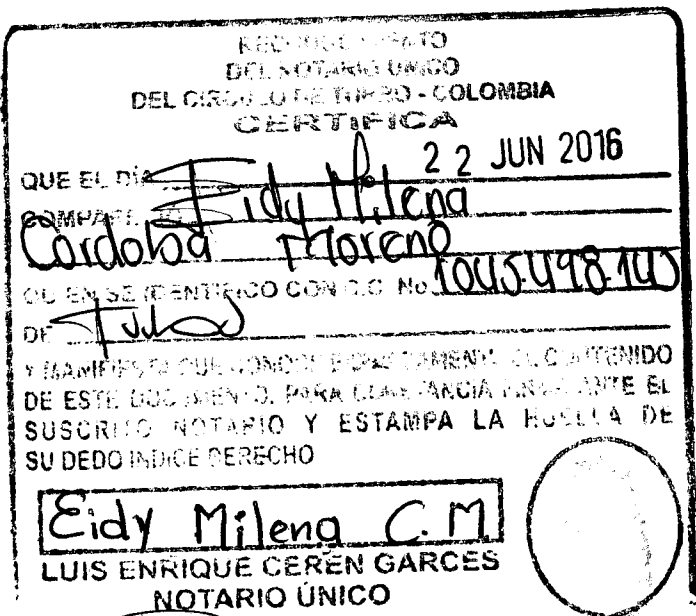 RECONOCIMIENTO
DEL NOTARIO UNICO
DEL CIRCULO DE TURBO - COLOMBIA
CERTIFICA
QUE EL DIA 22 JUN 2016
COMPARECIO Eidy Milena
Cordoba Moreno
QUIEN SE IDENTIFICO CON C.C. No. 1045.498.145
DE Turbo
Y MANIFIESTA QUE CONOCE EL CONTENIDO
DE ESTE DOCUMENTO. PARA CONSTANCIA ANTE EL
SUSCRITO NOTARIO Y ESTAMPA LA HUELLA DE
SU DEDO INDICE DERECHO
Eidy Milena C.M
LUIS ENRIQUE CEREN GARCES
NOTARIO ÚNICO